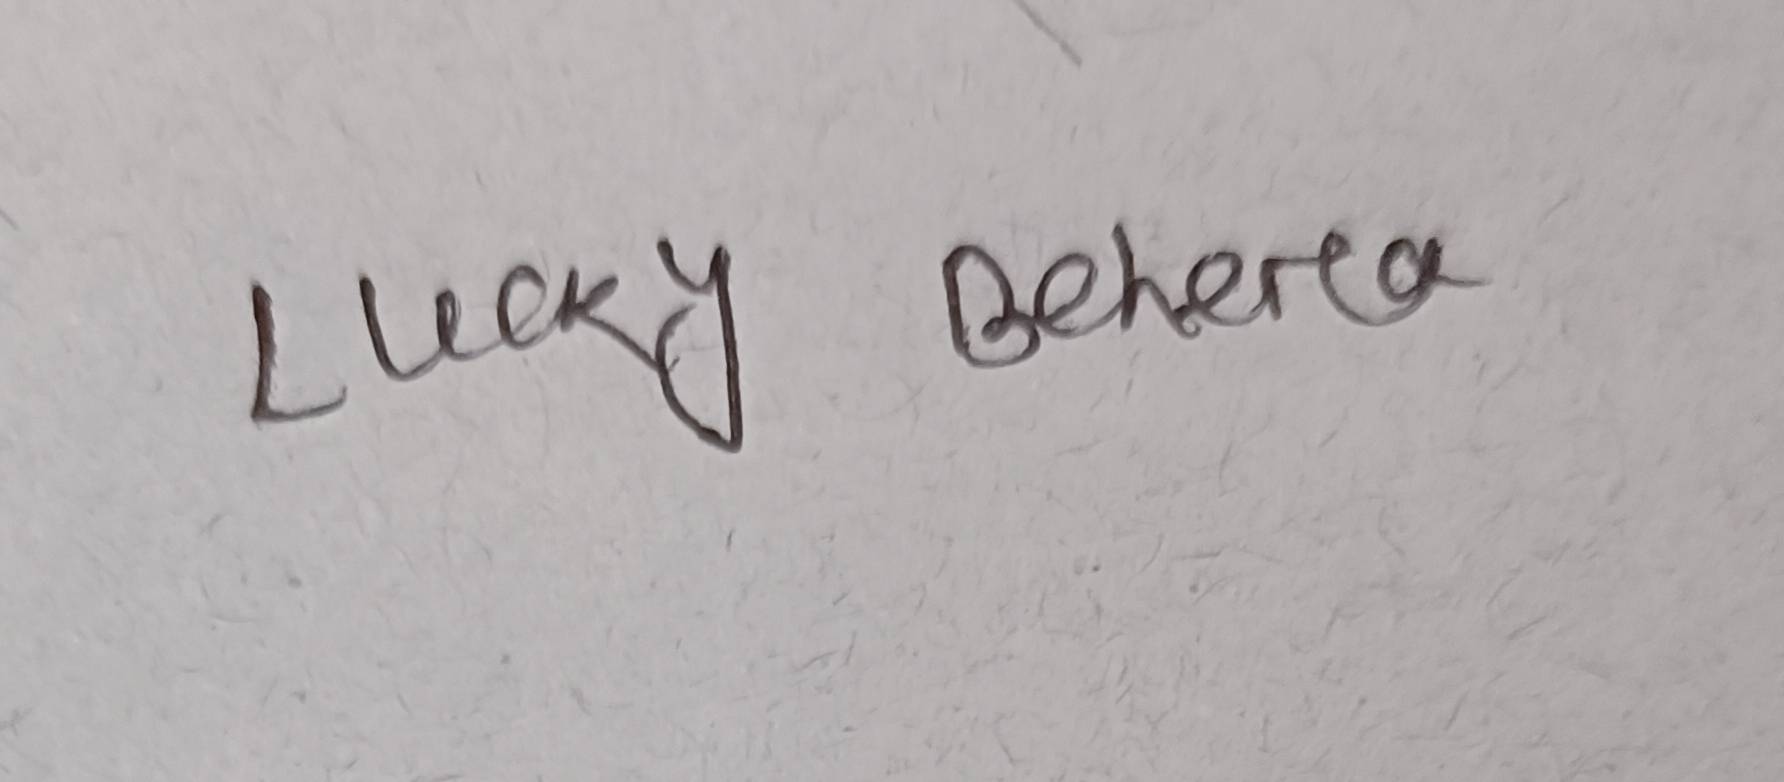 Lucky Behera